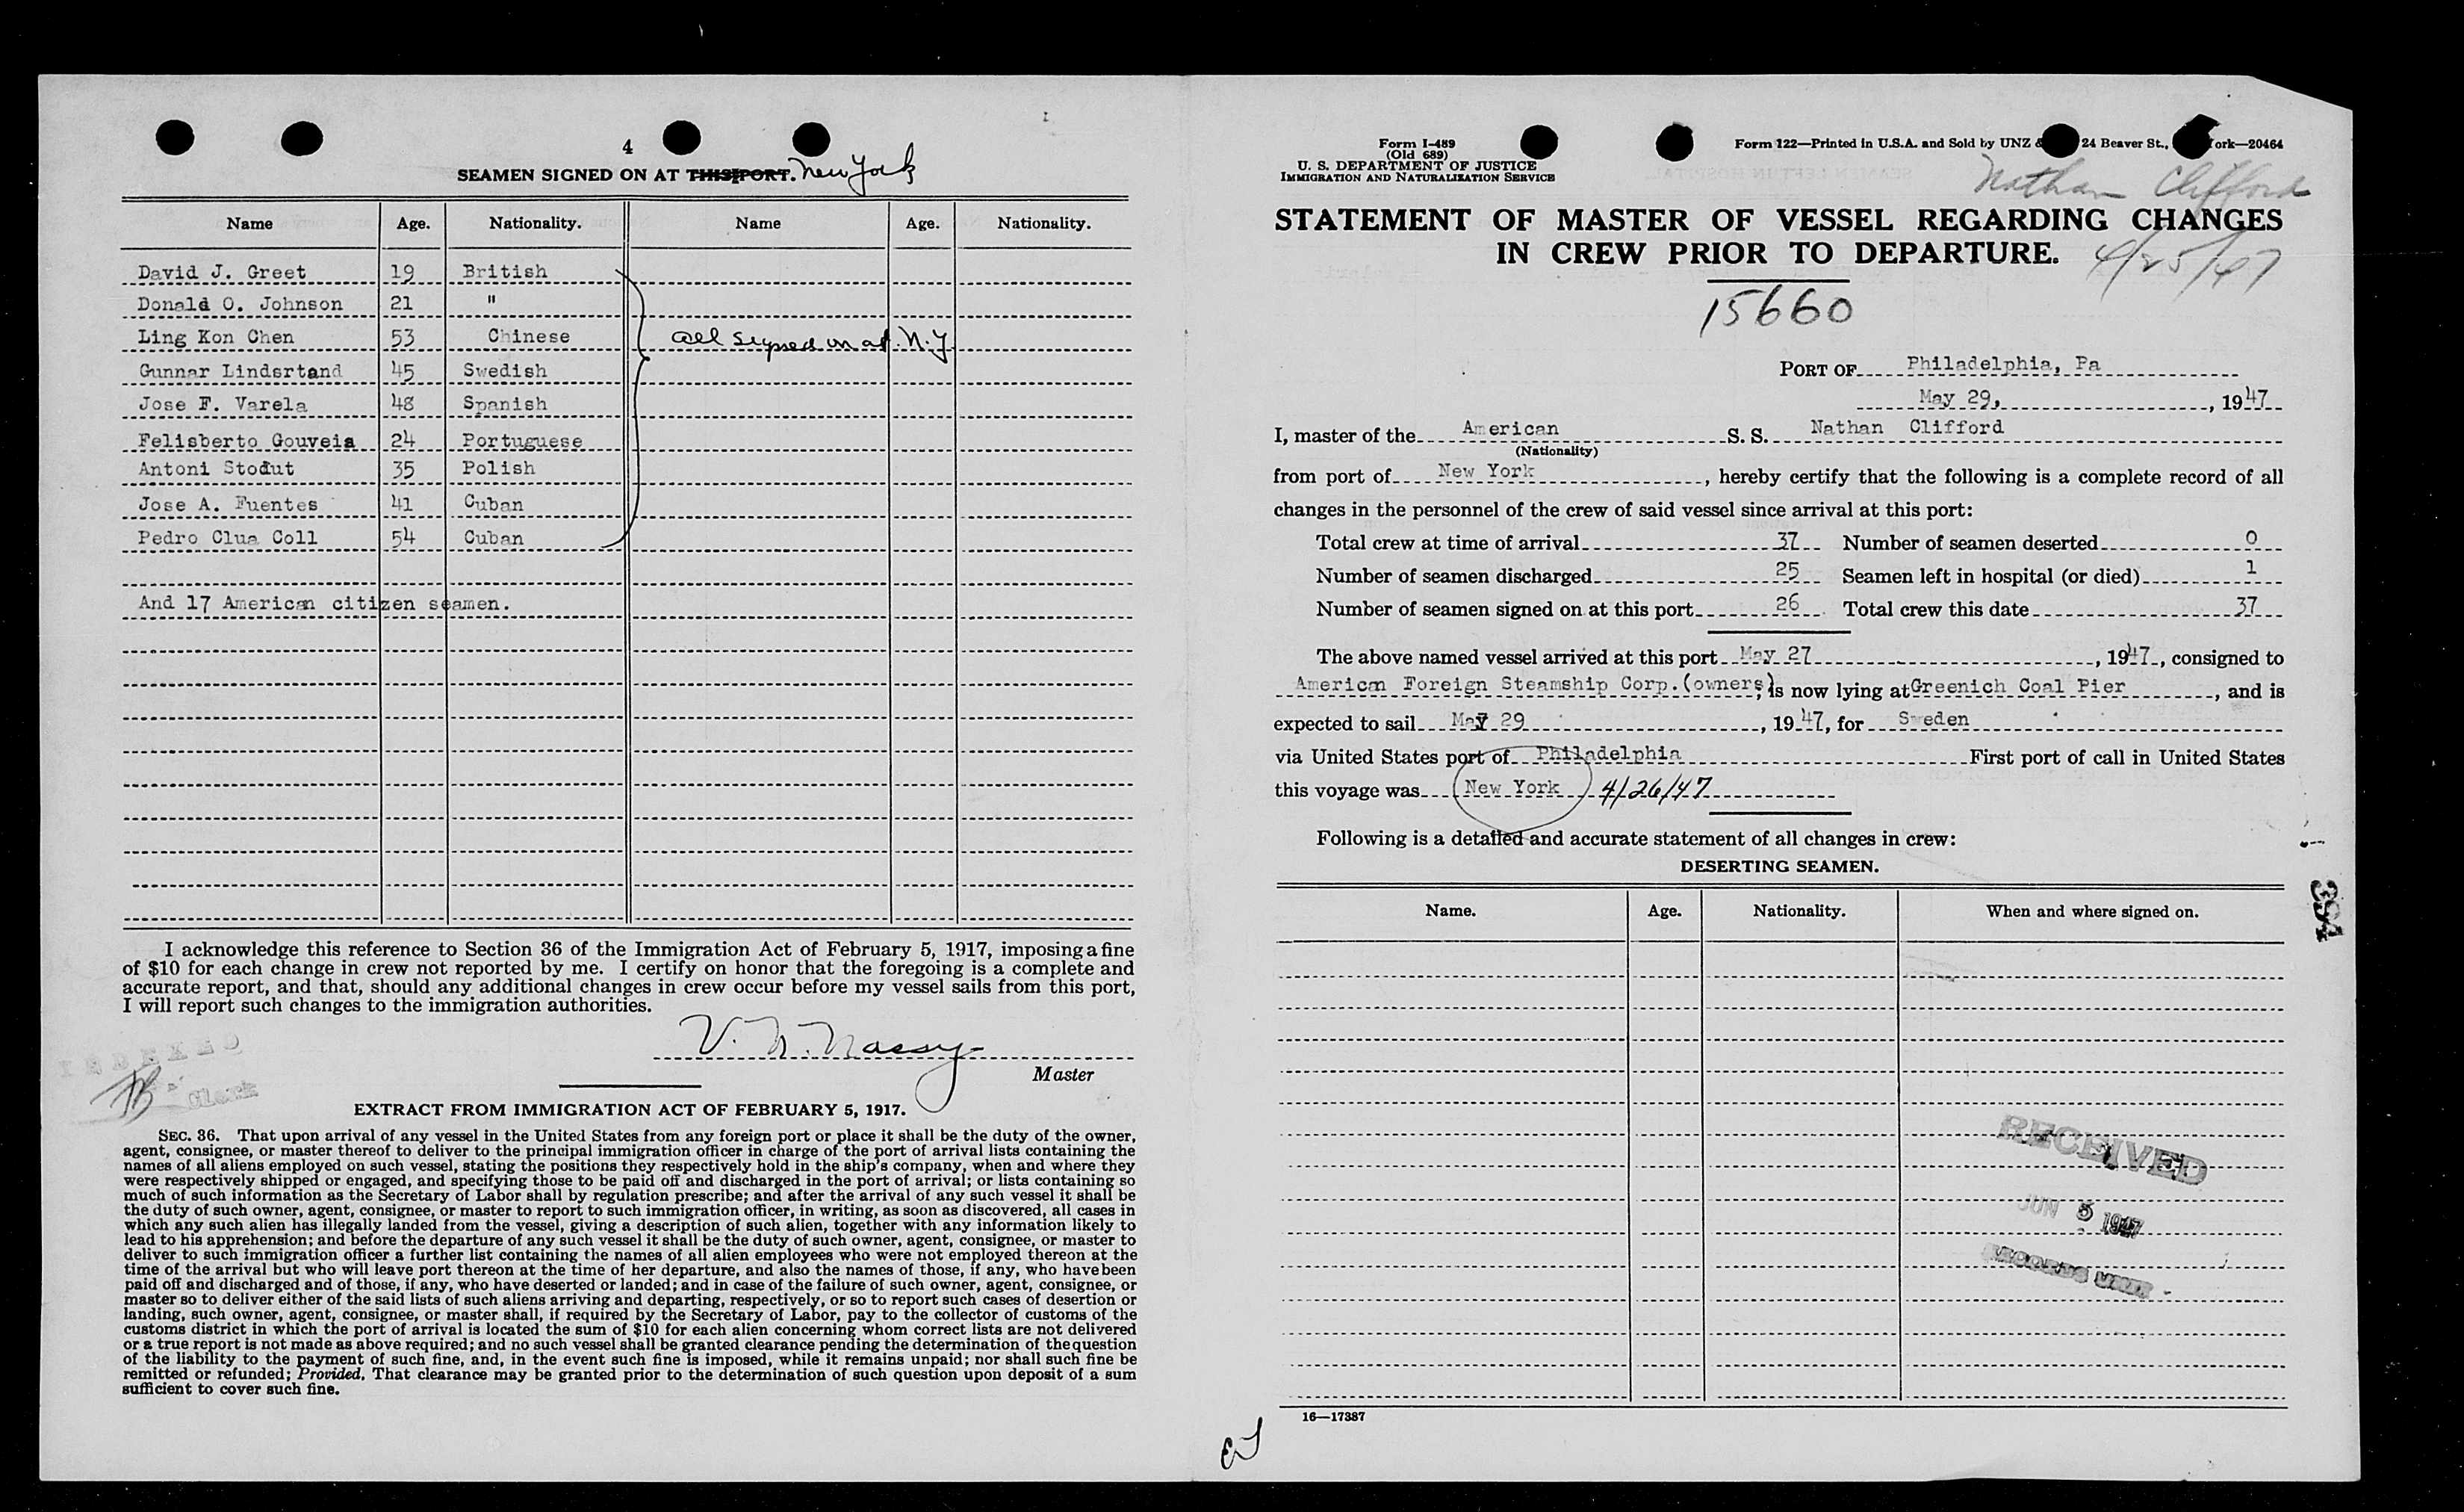 4
SEAMEN SIGNED ON AT THIS PORT. New York
Name Age. Nationality. Name Age. Nationality.
David J. Greet 19 British
Donald O. Johnson 21 "
Ling Kon Chen 53 Chinese all signed on at N.Y.
Gunnar Lindsrtand 45 Swedish
Jose F. Varela 48 Spanish
Felisberto Gouveia 24 Portuguese
Antoni Stodut 35 Polish
Jose A. Fuentes 41 Cuban
Pedro Clua Coll 54 Cuban
And 17 American citizen seamen.
I acknowledge this reference to Section 36 of the Immigration Act of February 5, 1917, imposing a fine
of $10 for each change in crew not reported by me. I certify on honor that the foregoing is a complete and
accurate report, and that, should any additional changes in crew occur before my vessel sails from this port,
I will report such changes to the immigration authorities.
V. N. Nassy
Master
INDEXED
Clerk
EXTRACT FROM IMMIGRATION ACT OF FEBRUARY 5, 1917.
SEC. 36. That upon arrival of any vessel in the United States from any foreign port or place it shall be the duty of the owner,
agent, consignee, or master thereof to deliver to the principal immigration officer in charge of the port of arrival lists containing the
names of all aliens employed on such vessel, stating the positions they respectively hold in the ship's company, when and where they
were respectively shipped or engaged, and specifying those to be paid off and discharged in the port of arrival; or lists containing so
much of such information as the Secretary of Labor shall by regulation prescribe; and after the arrival of any such vessel it shall be
the duty of such owner, agent, consignee, or master to report to such immigration officer, in writing, as soon as discovered, all cases in
which any such alien has illegally landed from the vessel, giving a description of such alien, together with any information likely to
lead to his apprehension; and before the departure of any such vessel it shall be the duty of such owner, agent, consignee, or master to
deliver to such immigration officer a further list containing the names of all alien employees who were not employed thereon at the
time of the arrival but who will leave port thereon at the time of her departure, and also the names of those, if any, who have been
paid off and discharged and of those, if any, who have deserted or landed; and in case of the failure of such owner, agent, consignee, or
master so to deliver either of the said lists of such aliens arriving and departing, respectively, or so to report such cases of desertion or
landing, such owner, agent, consignee, or master shall, if required by the Secretary of Labor, pay to the collector of customs of the
customs district in which the port of arrival is located the sum of $10 for each alien concerning whom correct lists are not delivered
or a true report is not made as above required; and no such vessel shall be granted clearance pending the determination of the question
of the liability to the payment of such fine, and, in the event such fine is imposed, while it remains unpaid; nor shall such fine be
remitted or refunded; Provided, That clearance may be granted prior to the determination of such question upon deposit of a sum
sufficient to cover such fine.
Form I-489
(Old 689)
U. S. DEPARTMENT OF JUSTICE
IMMIGRATION AND NATURALIZATION SERVICE
Form 122—Printed in U.S.A. and Sold by UNZ & 24 Beaver St., ork—20464
Nathan Clifford
STATEMENT OF MASTER OF VESSEL REGARDING CHANGES
IN CREW PRIOR TO DEPARTURE.
4/25/47
15660
PORT OF Philadelphia, Pa
May 29, , 1947
I, master of the American S. S. Nathan Clifford
(Nationality)
from port of New York , hereby certify that the following is a complete record of all
changes in the personnel of the crew of said vessel since arrival at this port:
Total crew at time of arrival 37 Number of seamen deserted 0
Number of seamen discharged 25 Seamen left in hospital (or died) 1
Number of seamen signed on at this port 26 Total crew this date 37
The above named vessel arrived at this port May 27 , 1947, consigned to
American Foreign Steamship Corp.(owners), is now lying at Greenich Coal Pier , and is
expected to sail May 29 , 1947, for Sweden
via United States port of Philadelphia First port of call in United States
this voyage was New York 4/26/47
Following is a detailed and accurate statement of all changes in crew:
DESERTING SEAMEN.
Name. Age. Nationality. When and where signed on.
394
RECEIVED
JUN 5 1947
RECORDS UNIT
16—17387
EJ